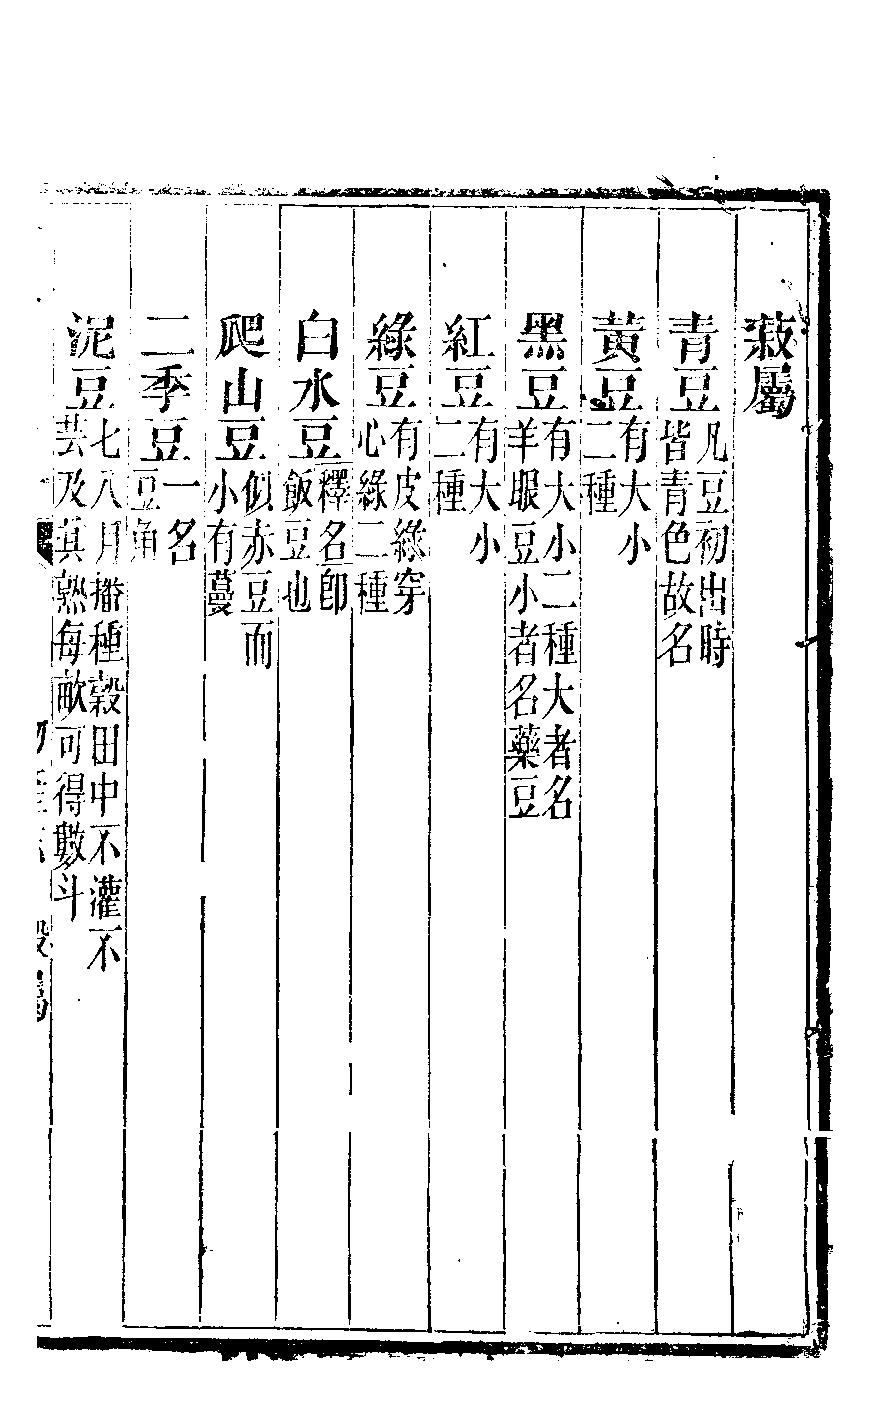 菽屬
青豆凡豆初出時皆青色故名
黃豆有大小二種
黑豆有大小二種大者名羊眼豆小者名藥豆
紅豆有大小二種
綠豆有皮綠穿心綠二種
白水豆釋名卽飯豆也
爬山豆似赤豆而小有蔓
二季豆一名豆角
泥豆七八月播種穀田中不灌不芸及其熟每畝可得數斗